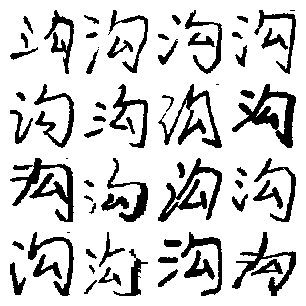 沟沟沟沟
沟沟沟沟
沟沟沟沟
沟沟沟沟